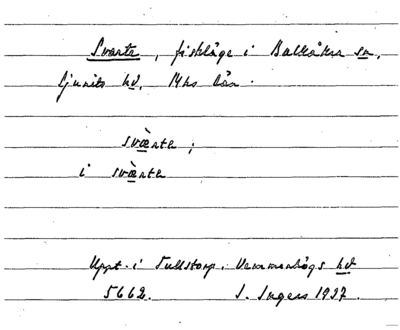 Svarte, fiskläge i Balkåkra sn,
Ljunits hd, Mhs län.
svä̀rte;
i svä̀rte
Uppt. i Tullstorp, Vemmenhögs hd
5662. I. Ingers 1937.